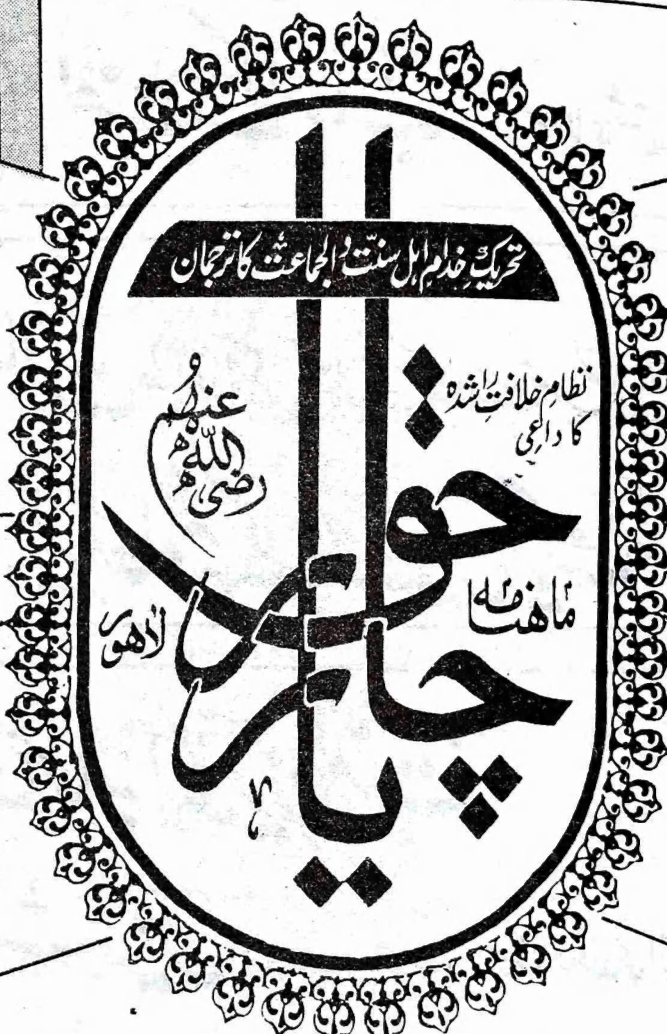 تحریک خدام اہل سنت والجماعت کا ترجمان
نظامِ خلافتِ راشدہ
کا داعی
رضی اللہ عنہم
ماہنامہ
حق چار یار
لاہور